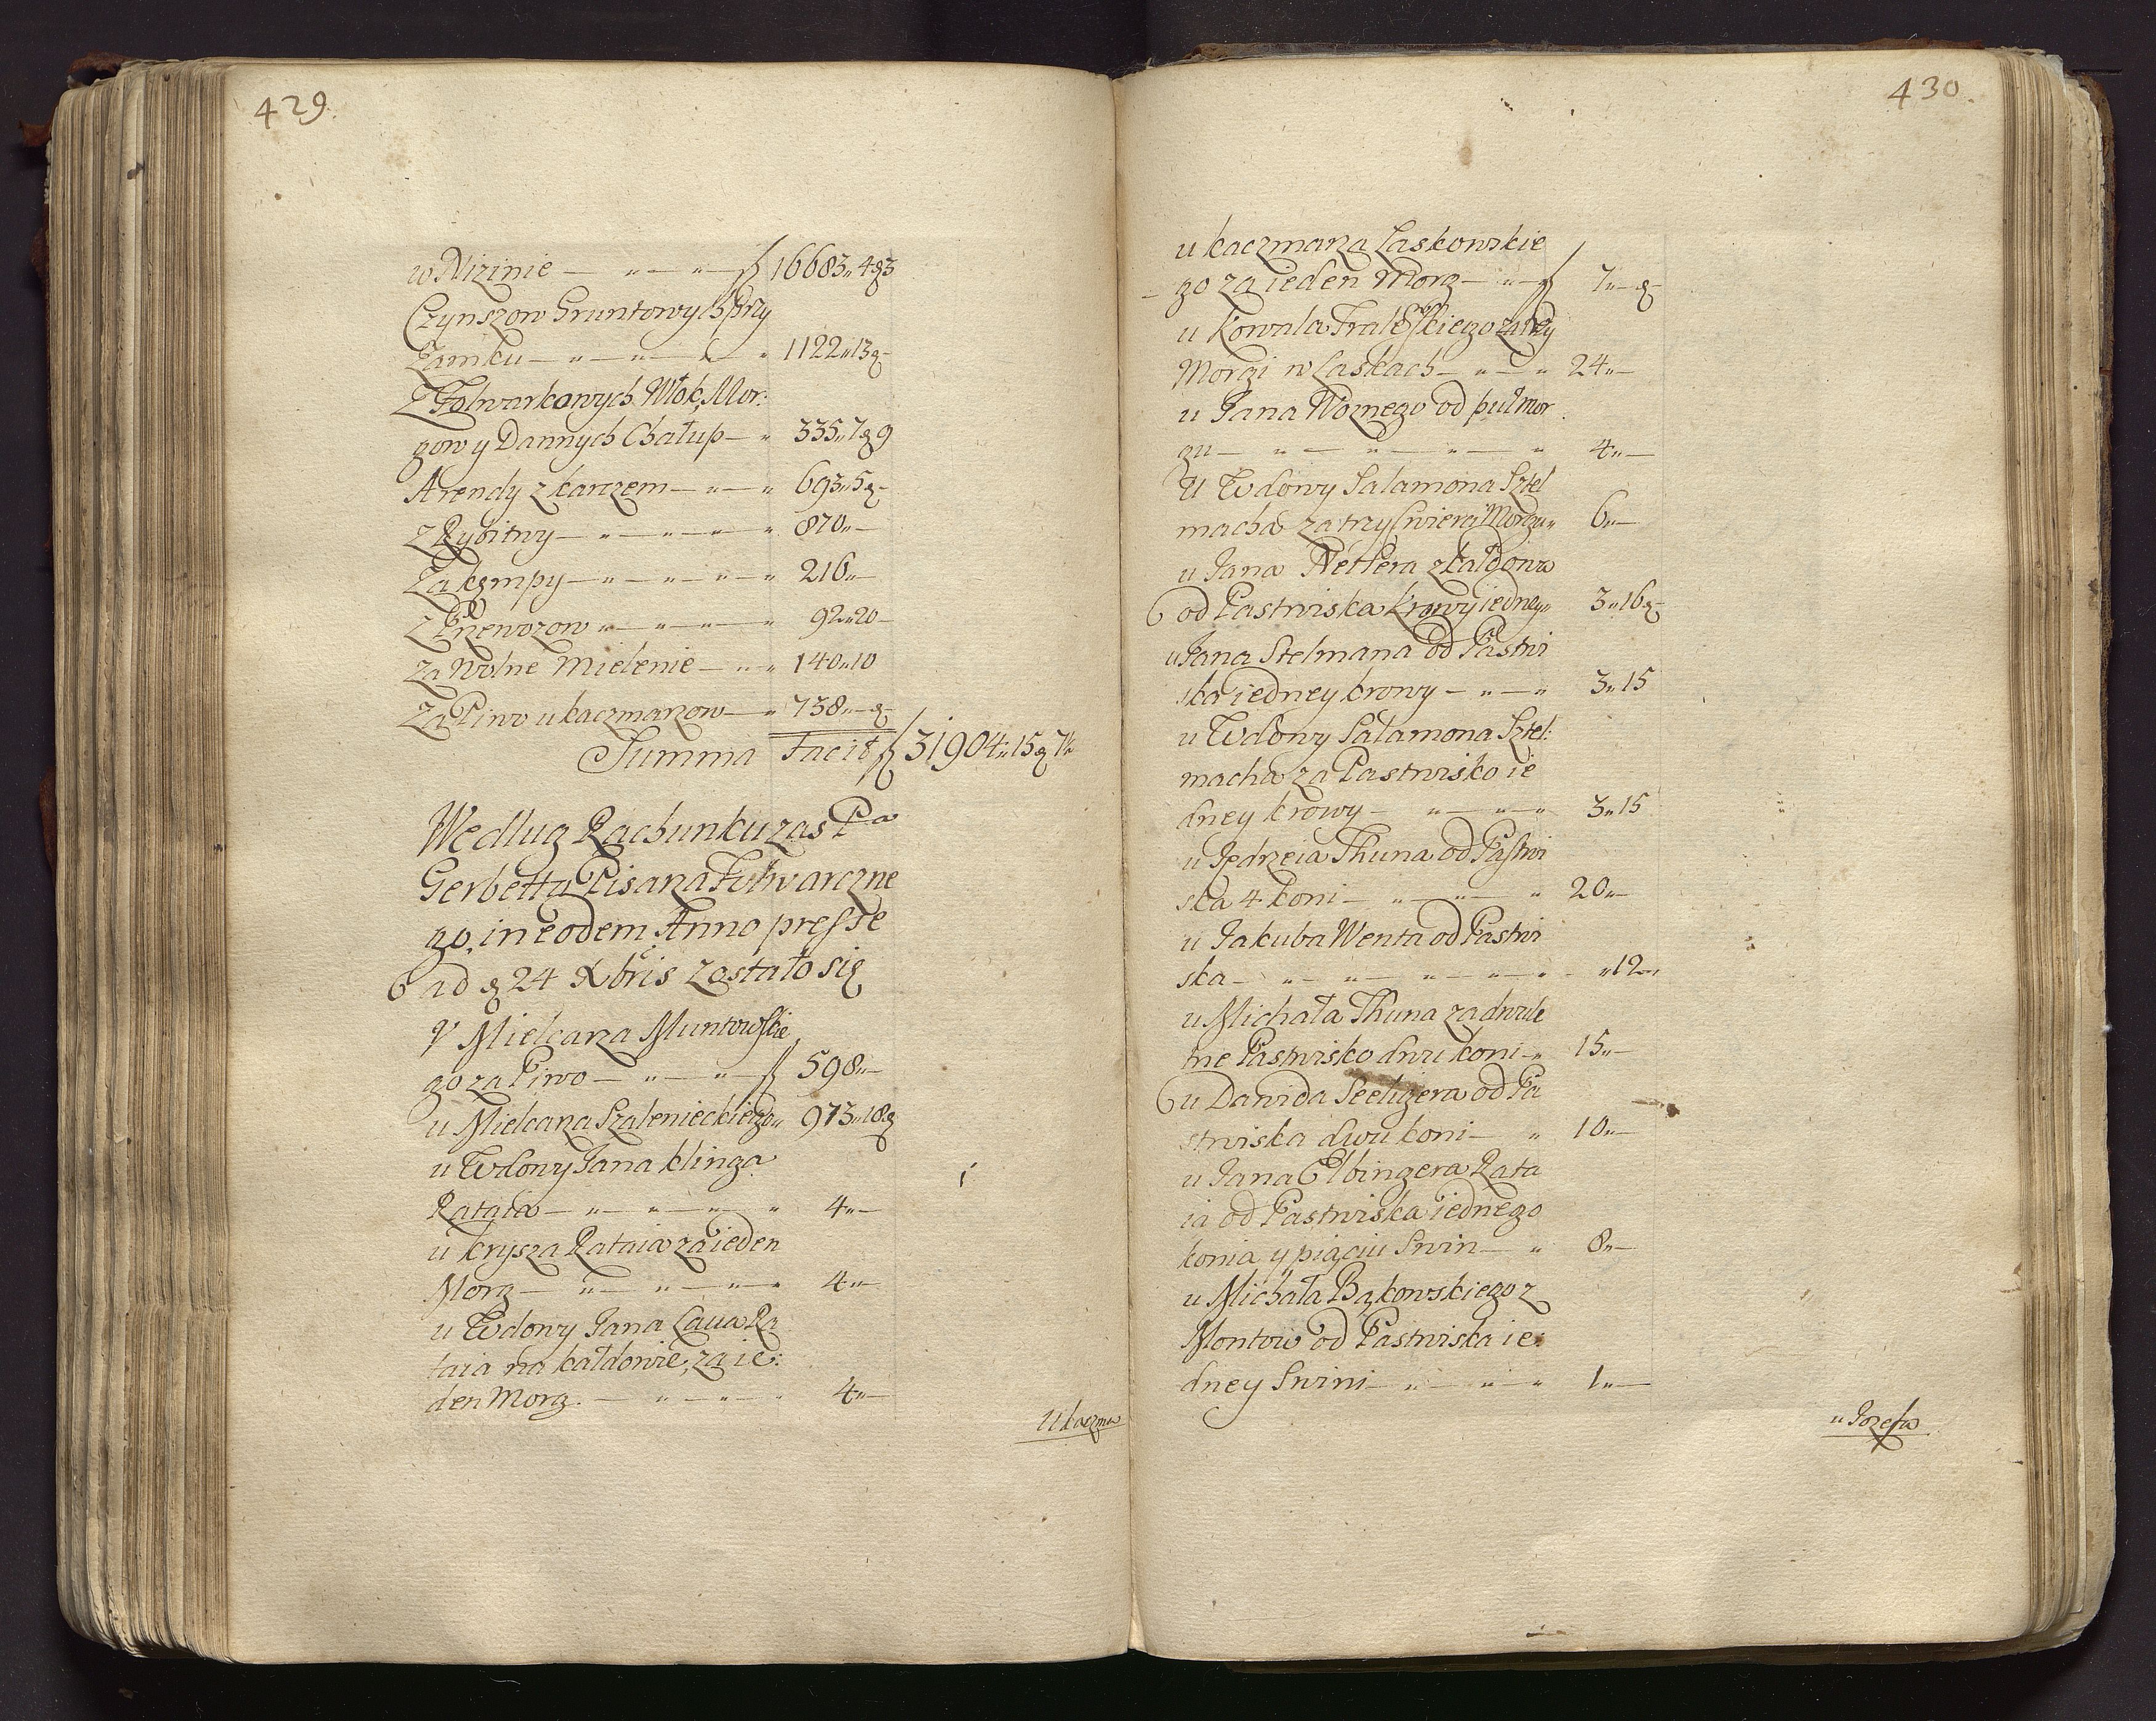 429.
w Nizinie — „ — „ — „ — ƒ 16683„ 4 g 3
Czynszow Gruntowych przy
Zamku — „ — „ — „ 1122„ 13 g —
Z Folwarkowych Włok, Mor:
gow y Dannych Chałup — „ 335„ 7 g 9
Arendy z karczem — „ — „ 693„ 5 g —
z Rybitwy — „ — „ — „ — „ 870„ —
Za kęmpy — „ — „ — „ — „ 216„ —
z Przewozow „ — „ — „ — „ 92„ 20 —
Za Wolne Mielenie — „ — „ 140„ 10
Za Piwo u kaczmarzow — „ 738„ — g —
Summa Facit ƒ 31904„ 15 g 7½
Wedlug Rachunku zas Pa
Gerbetta Pisarza Folwarczne
go, in eodem Anno præste
ad g 24 Xbris zostało się
V Mielcarza Muntowskie
go za Piwo — „ — „ — ƒ 598„ —
u Mielcarza Szalenieckiego„ 973„ 18 g
u Wdowy Jana Klinga
Rataia — „ — „ — „ — „ 4„ —
u Krysza Rataia za ieden
Morg — „ — „ — „ — „ 4„ —
u Wdowy Jana Laua Ra
taia na kałdowie, za ie:
den Morg. — „ — „ — „ 4„ —
U kaczma
430.
u kaczmarza Laskowskie
go za ieden Morg — „ — ƒ 7„ — g —
u Kowala za trzy
Morgi w Laskach — „ — „ 24„ —
u Jana Woznego od puł mor
gu — „ — „ — „ — „ 4„ —
U Wdowy Salamona Sztel
macha za trzy Cwierci Morgu„ 6„ —
u Jana Netlera z kałdowa
od Pastwiska Krowy iedney„ 3„ 16 g —
u Jana Stelmana od Pastwi
ska iedney krowy — „ — „ 3„ 15
u Wdowy Salamona Sztel:
macha za Pastwisko ie
dney krowy — „ — „ — „ 3„ 15
u Jędrzeia Thuna od Pastwi
ska 4 koni — „ — „ — „ 20„ —
u Jakuba Wenta od Pastwi
ska — „ — „ — „ — „ — „ 12„
u Michała Thuna za dwule
tne Pastwisko dwu koni — „ 15„ —
u Dawida Seeligera od Pa
stwiska dwu koni — „ 10„ —
u Jana Elbingera Rata
ia od Pastwiska iednego
konia y piąciu Swin — „ 8„ —
u Michała Bąkowskiego z
Montow od Pastwiska ie:
dney Swini — „ — „ — „ 1„ —
u Jozefa